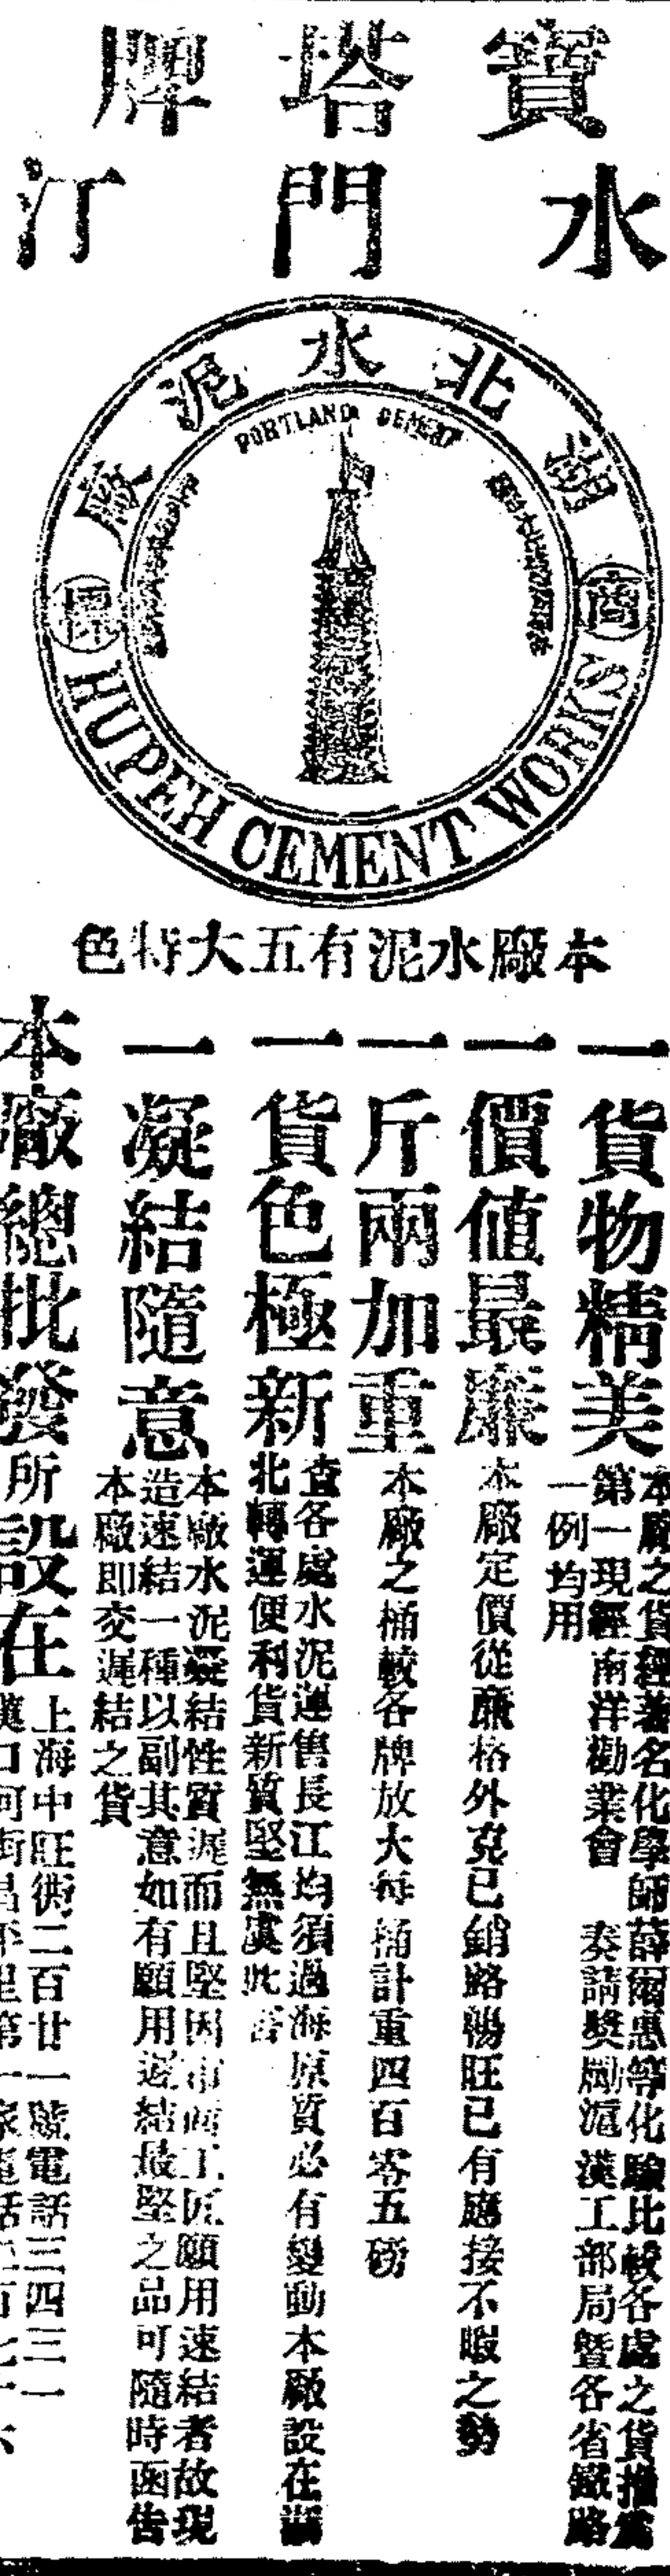 寶塔牌
水門汀
湖北水泥廠
PORTLAND CEMENT
商標
HUPEH CEMENT WORKS
本廠水泥有五大特色
一貨物精美
本廠之貨經著名化學師薛爾惠等化驗比較各處之貨推為
第一現經南洋勸業會 奏請獎勵滬漢工部局暨各省鐵路
一例均用
一價值最廉
本廠定價從廉格外克己銷路暢旺已有應接不暇之勢
一斤兩加重
本廠之桶較各牌放大每桶計重四百零五磅
一貨色極新
查各處水泥運售長江均須過海原質必有變動本廠設在湖
北轉運便利貨新質堅無虞此害
一凝結隨意
本廠水泥凝結性質遲而且堅因市面工匠願用速結者故現
造速結一種以副其意如有願用遲結最堅之品可隨時函告
本廠即交遲結之貨
本廠總批發所設在
上海中旺街二百廿一號電話三四三一
漢口河街昌平里第一家電話二百七十六